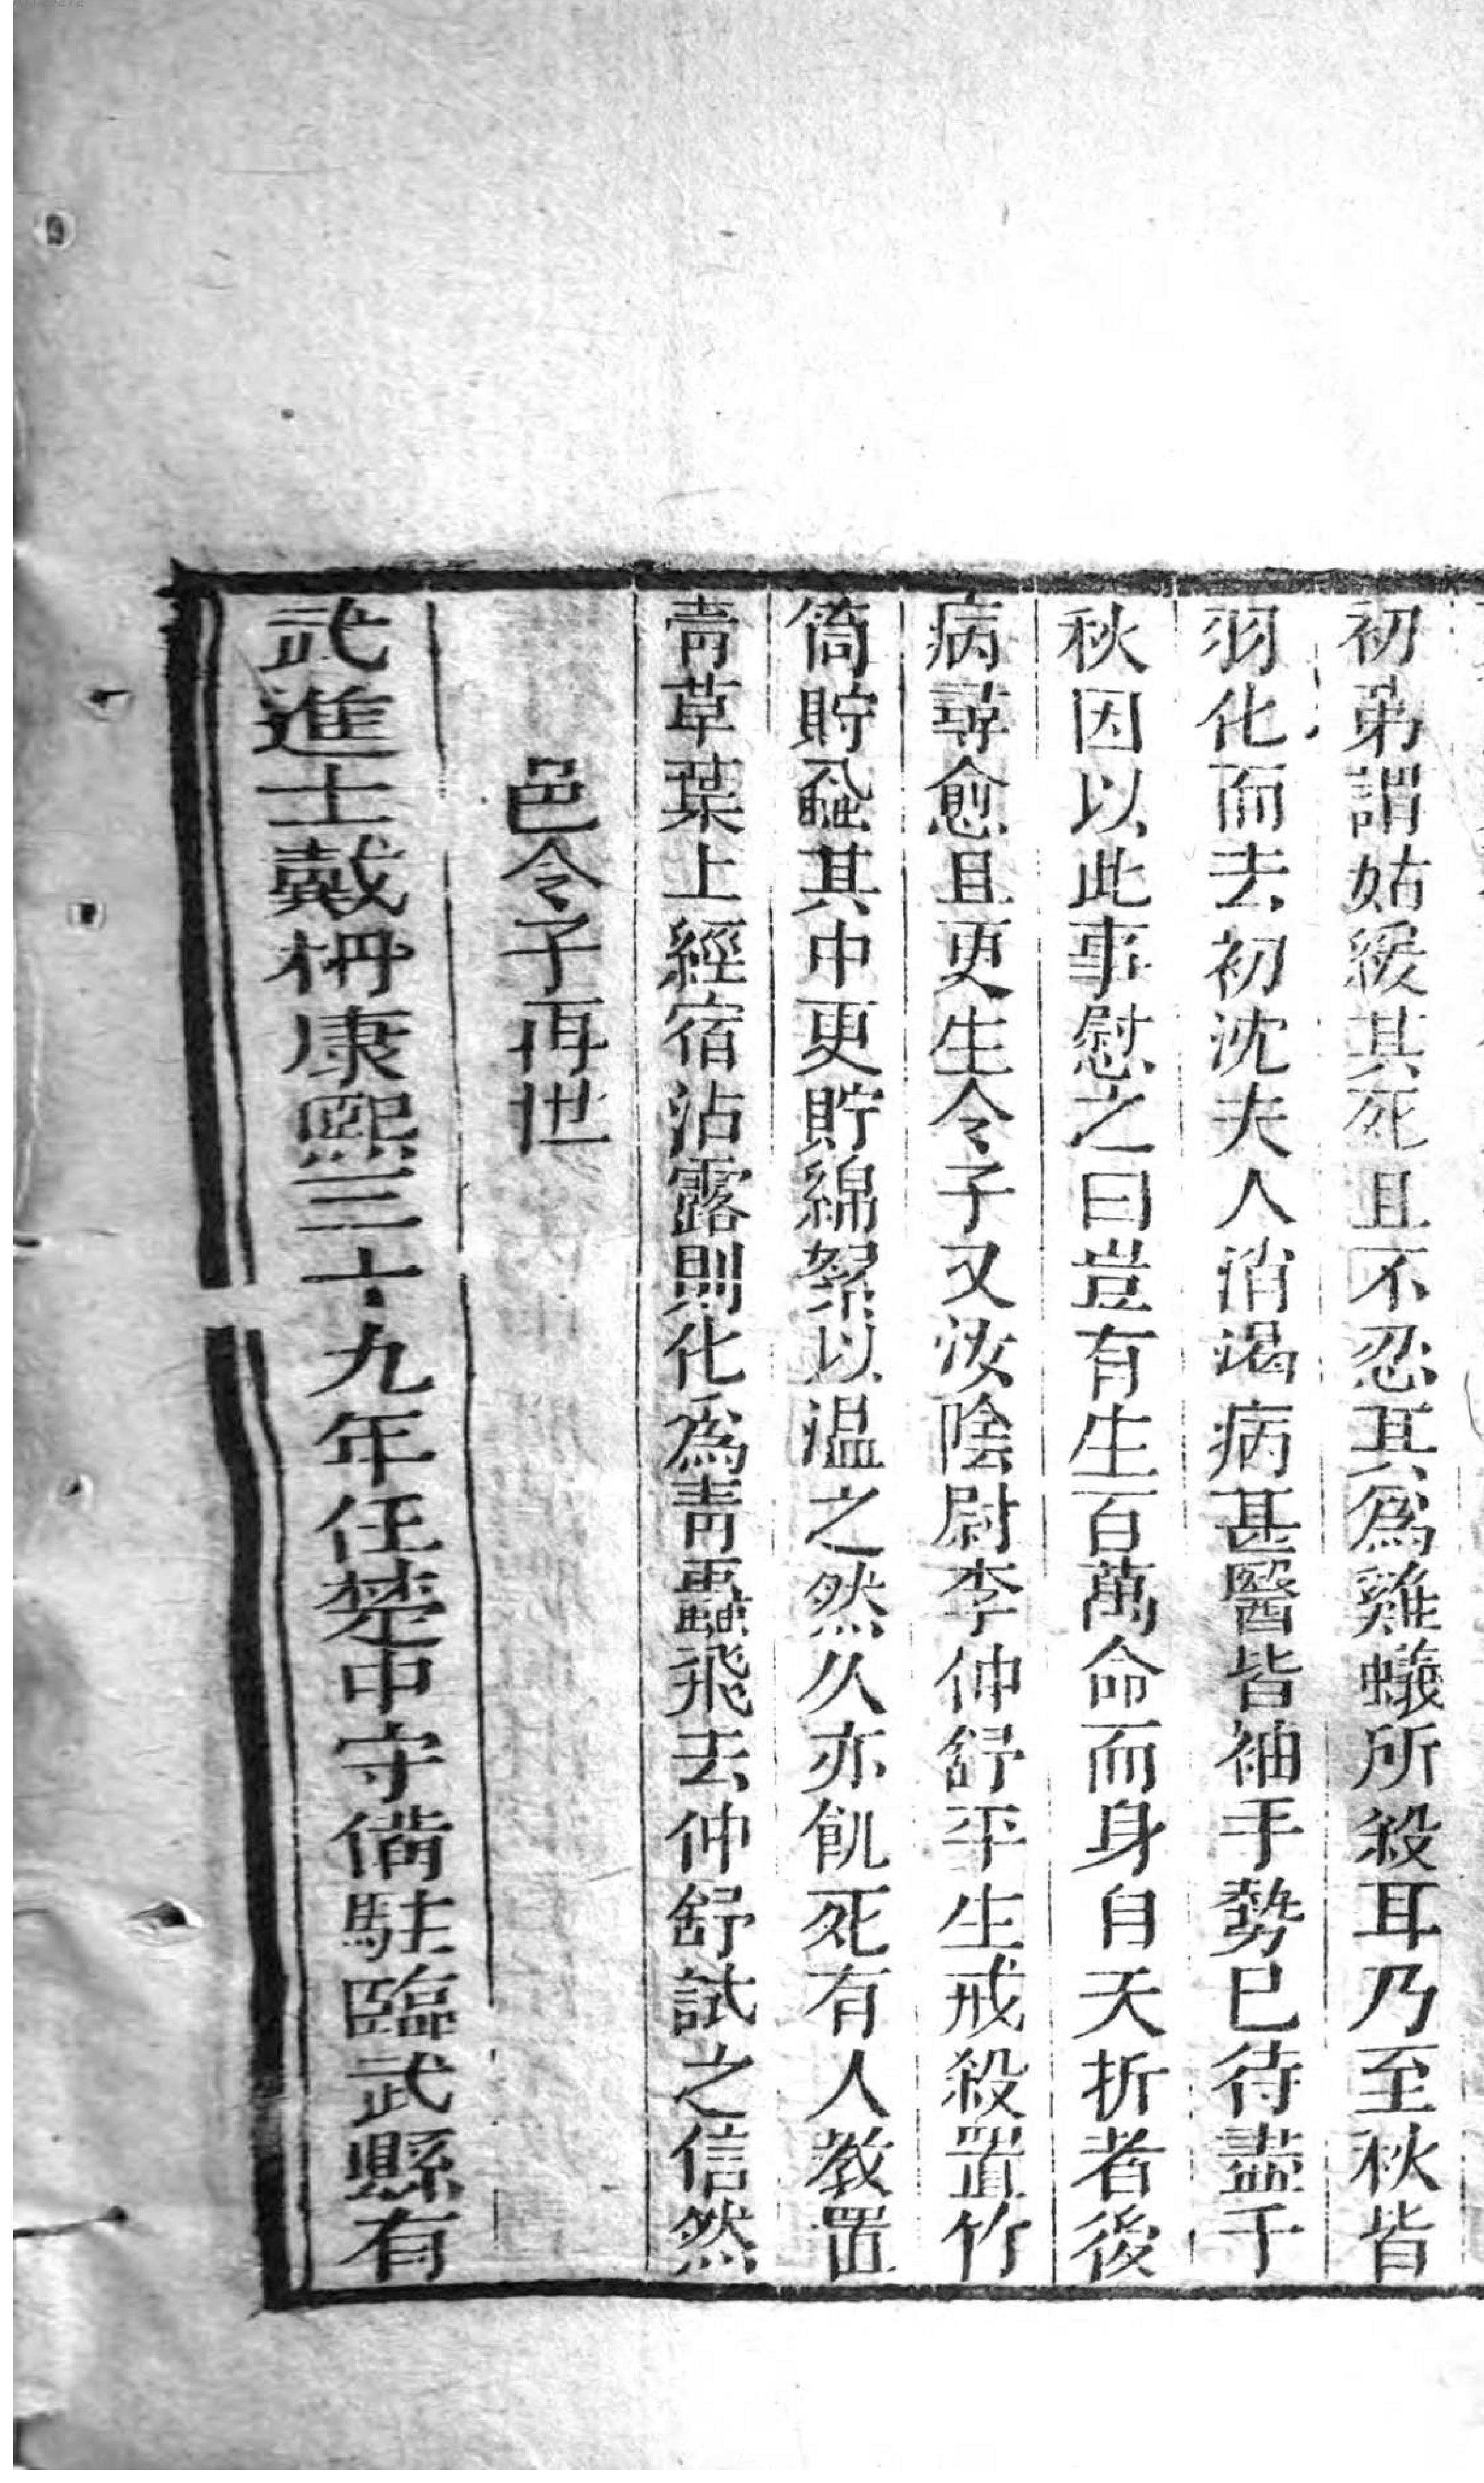 初弟謂姑緩其死且不忍其為雞蟻所殺耳乃至秋皆
羽化而去初沈夫人消渴病甚醫皆袖手勢已待盡于
秋因以此事慰之曰豈有生百萬命而身自夭折者後
病尋愈且更生令子又汝陰尉李仲舒平生戒殺置竹
筒貯蝨其中更貯綿絮以温之然久亦飢死有人教置
青草葉上經宿沾露則化為青蟲飛去仲舒試之信然
邑令子再世
武進士戴枬康熙三十九年任楚中守備駐臨武縣有